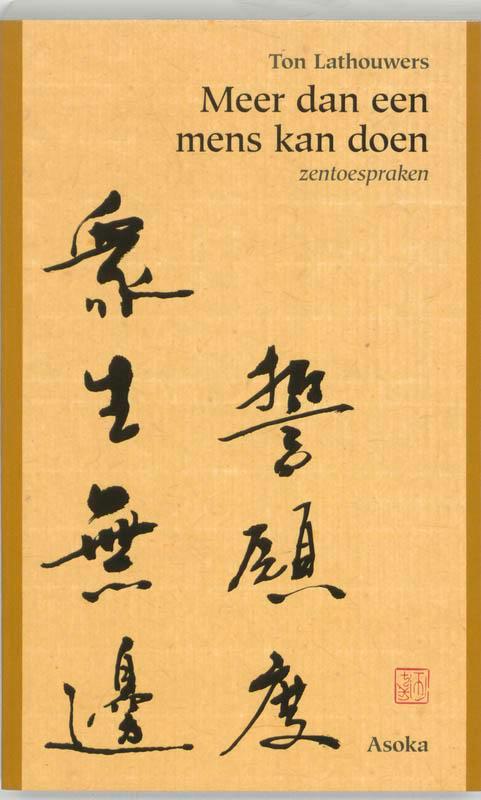 Ton Lathouwers
Meer dan een
mens kan doen
zentoespraken
衆生無邊
誓願度
Asoka